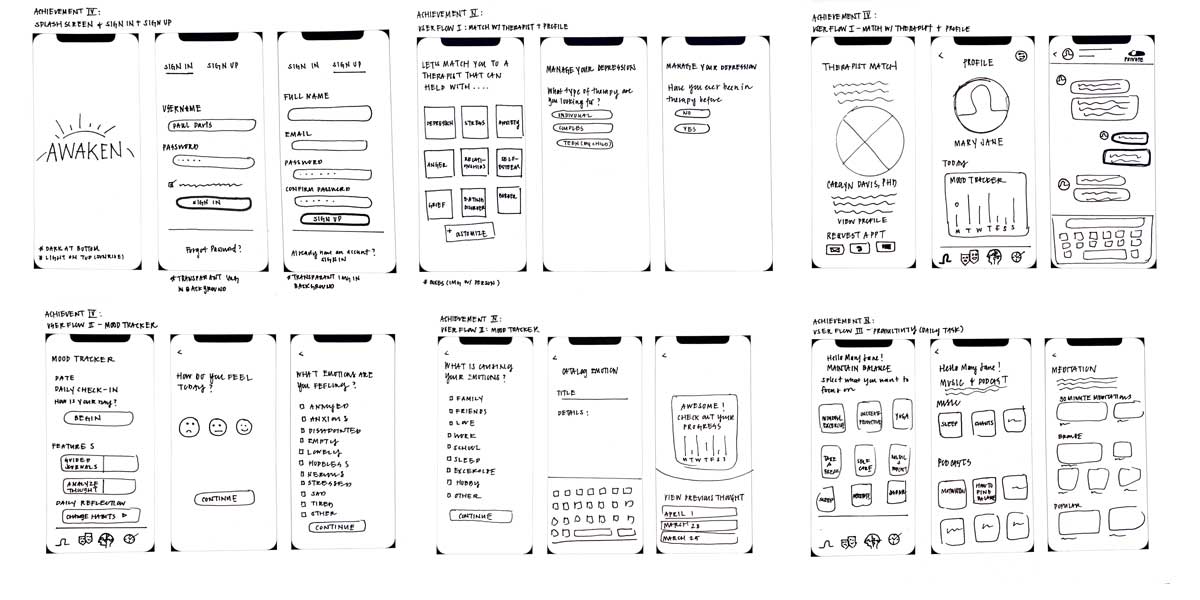 ACHIEVEMENT IV:
SPLASH SCREEN + SIGN IN + SIGN UP
AWAKEN
* DARK AT BOTTOM
* LIGHT ON TOP (SUNRISE)
SIGN IN SIGN UP
USERNAME
PAUL DAVIS
PASSWORD
SIGN IN
Forgot Password?
* TRANSPARANT IMG
IN BACKGROUND
SIGN IN SIGN UP
FULL NAME
EMAIL
PASSWORD
CONFIRM PASSWORD
SIGN UP
Already have an account?
SIGN IN
* TRANSPARANT IMG IN
BACKGROUND
ACHIEVEMENT IV:
USER FLOW I: MATCH W/ THERAPIST + PROFILE
LETS MATCH YOU TO A
THERAPIST THAT CAN
HELP WITH ....
DEPRESSION STRESS ANXIETY
ANGER RELATIONSHIPS SELF-ESTEEM
GRIEF EATING DISORDER
+ CUSTOMIZE
MANAGE YOUR DEPRESSION
What type of therapy are
you looking for?
INDIVIDUAL
COUPLES
TEEN (MY CHILD)
MANAGE YOUR DEPRESSION
Have you ever been in
therapy before
NO
YES
ACHIEVEMENT IV:
USER FLOW I - MATCH W/ THERAPIST + PROFILE
THERAPIST MATCH
CAROLYN DAVIS, PHD
VIEW PROFILE
REQUEST APPT
<
PROFILE
MARY JANE
TODAY
MOOD TRACKER
M T W T F S S
<
PRIVATE
ACHIEVEMENT IV:
USER FLOW II - MOOD TRACKER
MOOD TRACKER
DATE
DAILY CHECK-IN
HOW IS YOUR DAY?
BEGIN
FEATURES
GUIDED
JOURNALS
ANALYZE
THOUGHT
DAILY REFLECTION
CHANGE HABITS
<
HOW DO YOU FEEL
TODAY?
CONTINUE
<
WHAT EMOTIONS ARE
YOU FEELING?
ANNOYED
ANXIOUS
DISAPPOINTED
EMPTY
LONELY
HOPELESS
NERVOUS
STRESSED
SAD
TIRED
OTHER
CONTINUE
ACHIEVEMENT IV:
USER FLOW II: MOOD TRACKER
<
WHAT IS CAUSING
YOUR EMOTIONS?
FAMILY
FRIENDS
LOVE
WORK
SCHOOL
SLEEP
EXCERCISE
HOBBY
OTHER
CONTINUE
<
CATALOG EMOTION
TITLE
DETAILS:
<
AWESOME!
CHECK OUT YOUR
PROGRESS
M T W T F S S
VIEW PREVIOUS THOUGHT
APRIL 1
MARCH 28
MARCH 25
ACHIEVEMENT IV:
USER FLOW III - PRODUCTIVITY (DAILY TASK)
Hello Mary Jane!
MAINTAIN BALANCE
Select what you want to
focus on
INCREASE PRODUCTIVE YOGA
TAKE A BREAK SELF CARE MUSIC + PODCAST
SLEEP
<
Hello Mary Jane!
MUSIC + PODCAST
MUSIC
SLEEP CHANTS
PODCASTS
MOTIVATION HOW TO FIND BALANCE
<
MEDITATION
30 MINUTE MEDITATIONS
BROWSE
POPULAR